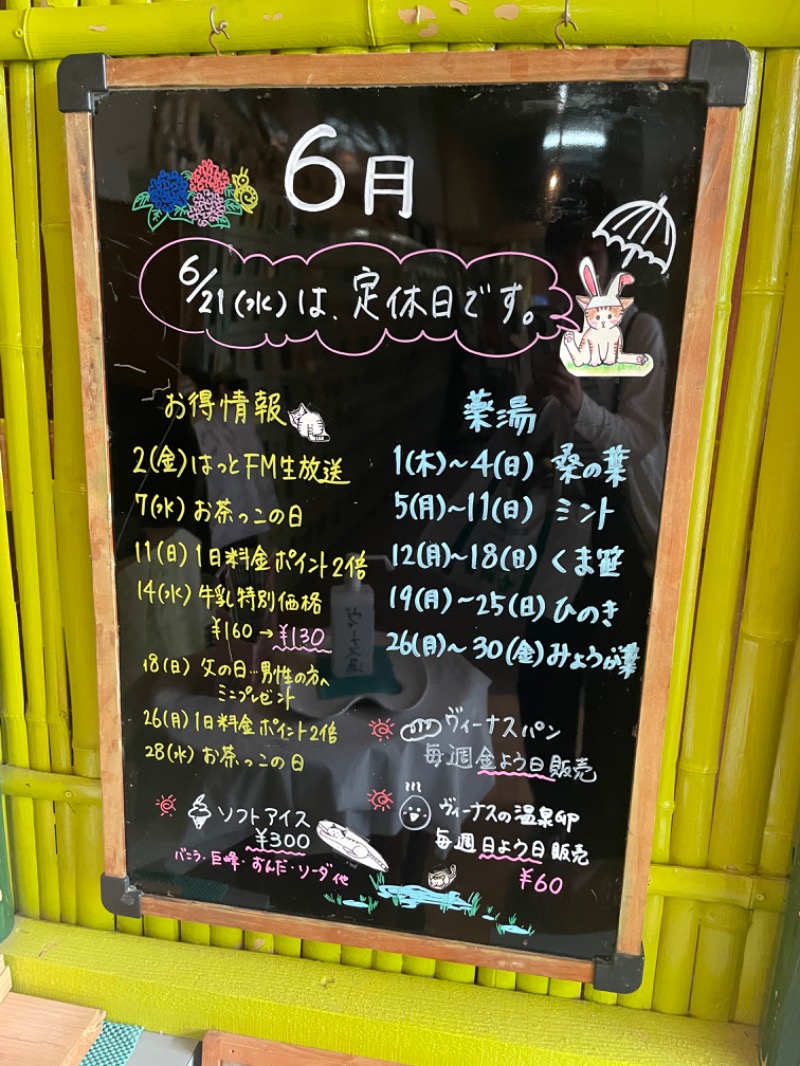 6月
6/21(水)は、定休日です。
お得情報
2(金)はっとFM生放送
7(水)お茶っこの日
11(日)1日料金ポイント2倍
14(水)牛乳特別価格
¥160→¥130
18(日)父の日…男性の方へ
ミニプレゼント
26(月)1日料金ポイント2倍
28(水)お茶っこの日
ソフトアイス
¥300
バニラ・巨峰・ずんだ・ソーダ他
薬湯
1(木)～4(日)桑の葉
5(月)～11(日)ミント
12(月)～18(日)くま笹
19(月)～25(日)ひのき
26(月)～30(金)みょうが葉
ヴィーナスパン
毎週金よう日販売
ヴィーナスの温泉卵
毎週日よう日販売
¥60